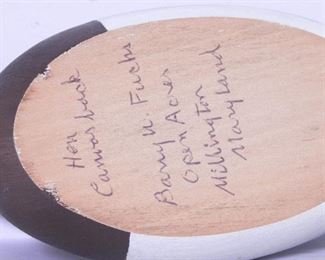 Hen
Canvasback
Barry W. Fuchs
Open Acres
Millington
Maryland